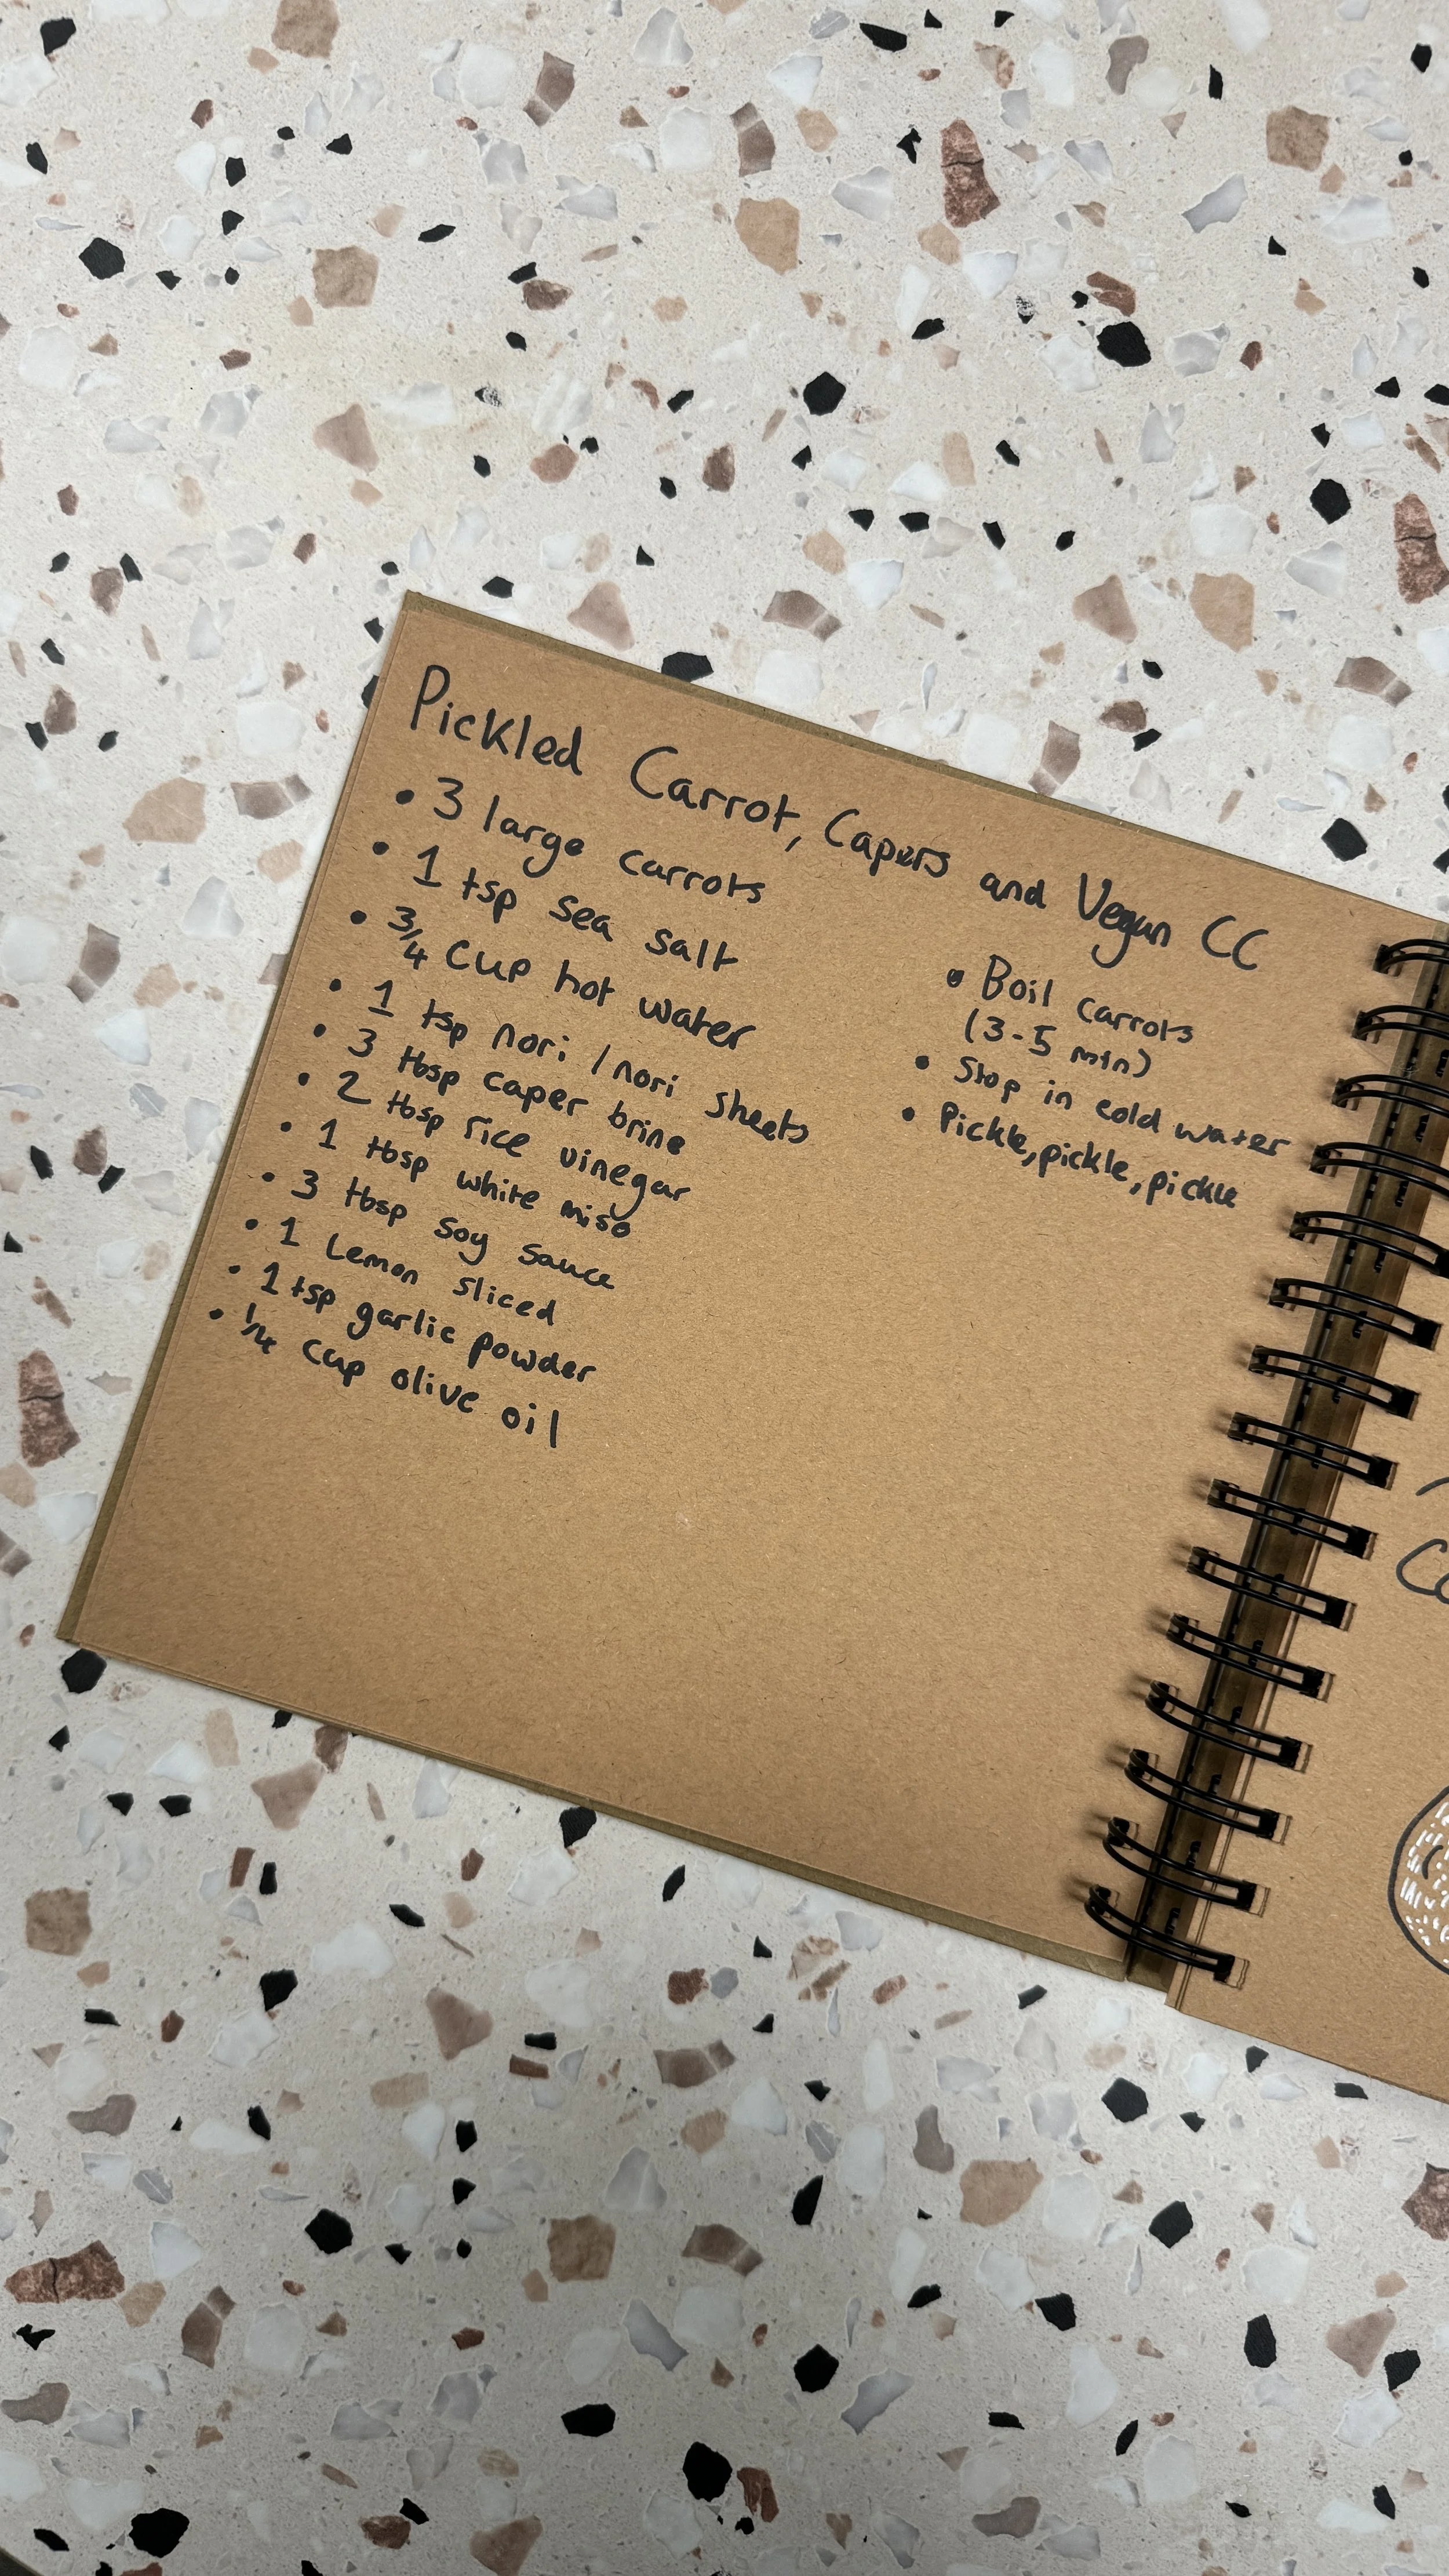 Pickled Carrot, Capers and Vegan CC
• 3 large carrots
• 1 tsp sea salt
• 3/4 Cup hot water
• 1 tsp nori / nori sheets
• 3 tbsp caper brine
• 2 tbsp rice vinegar
• 1 tbsp white miso
• 3 tbsp soy sauce
• 1 Lemon sliced
• 1 tsp garlic powder
• 1/4 cup olive oil
• Boil carrots
(3-5 min)
• Stop in cold water
• Pickle, pickle, pickle